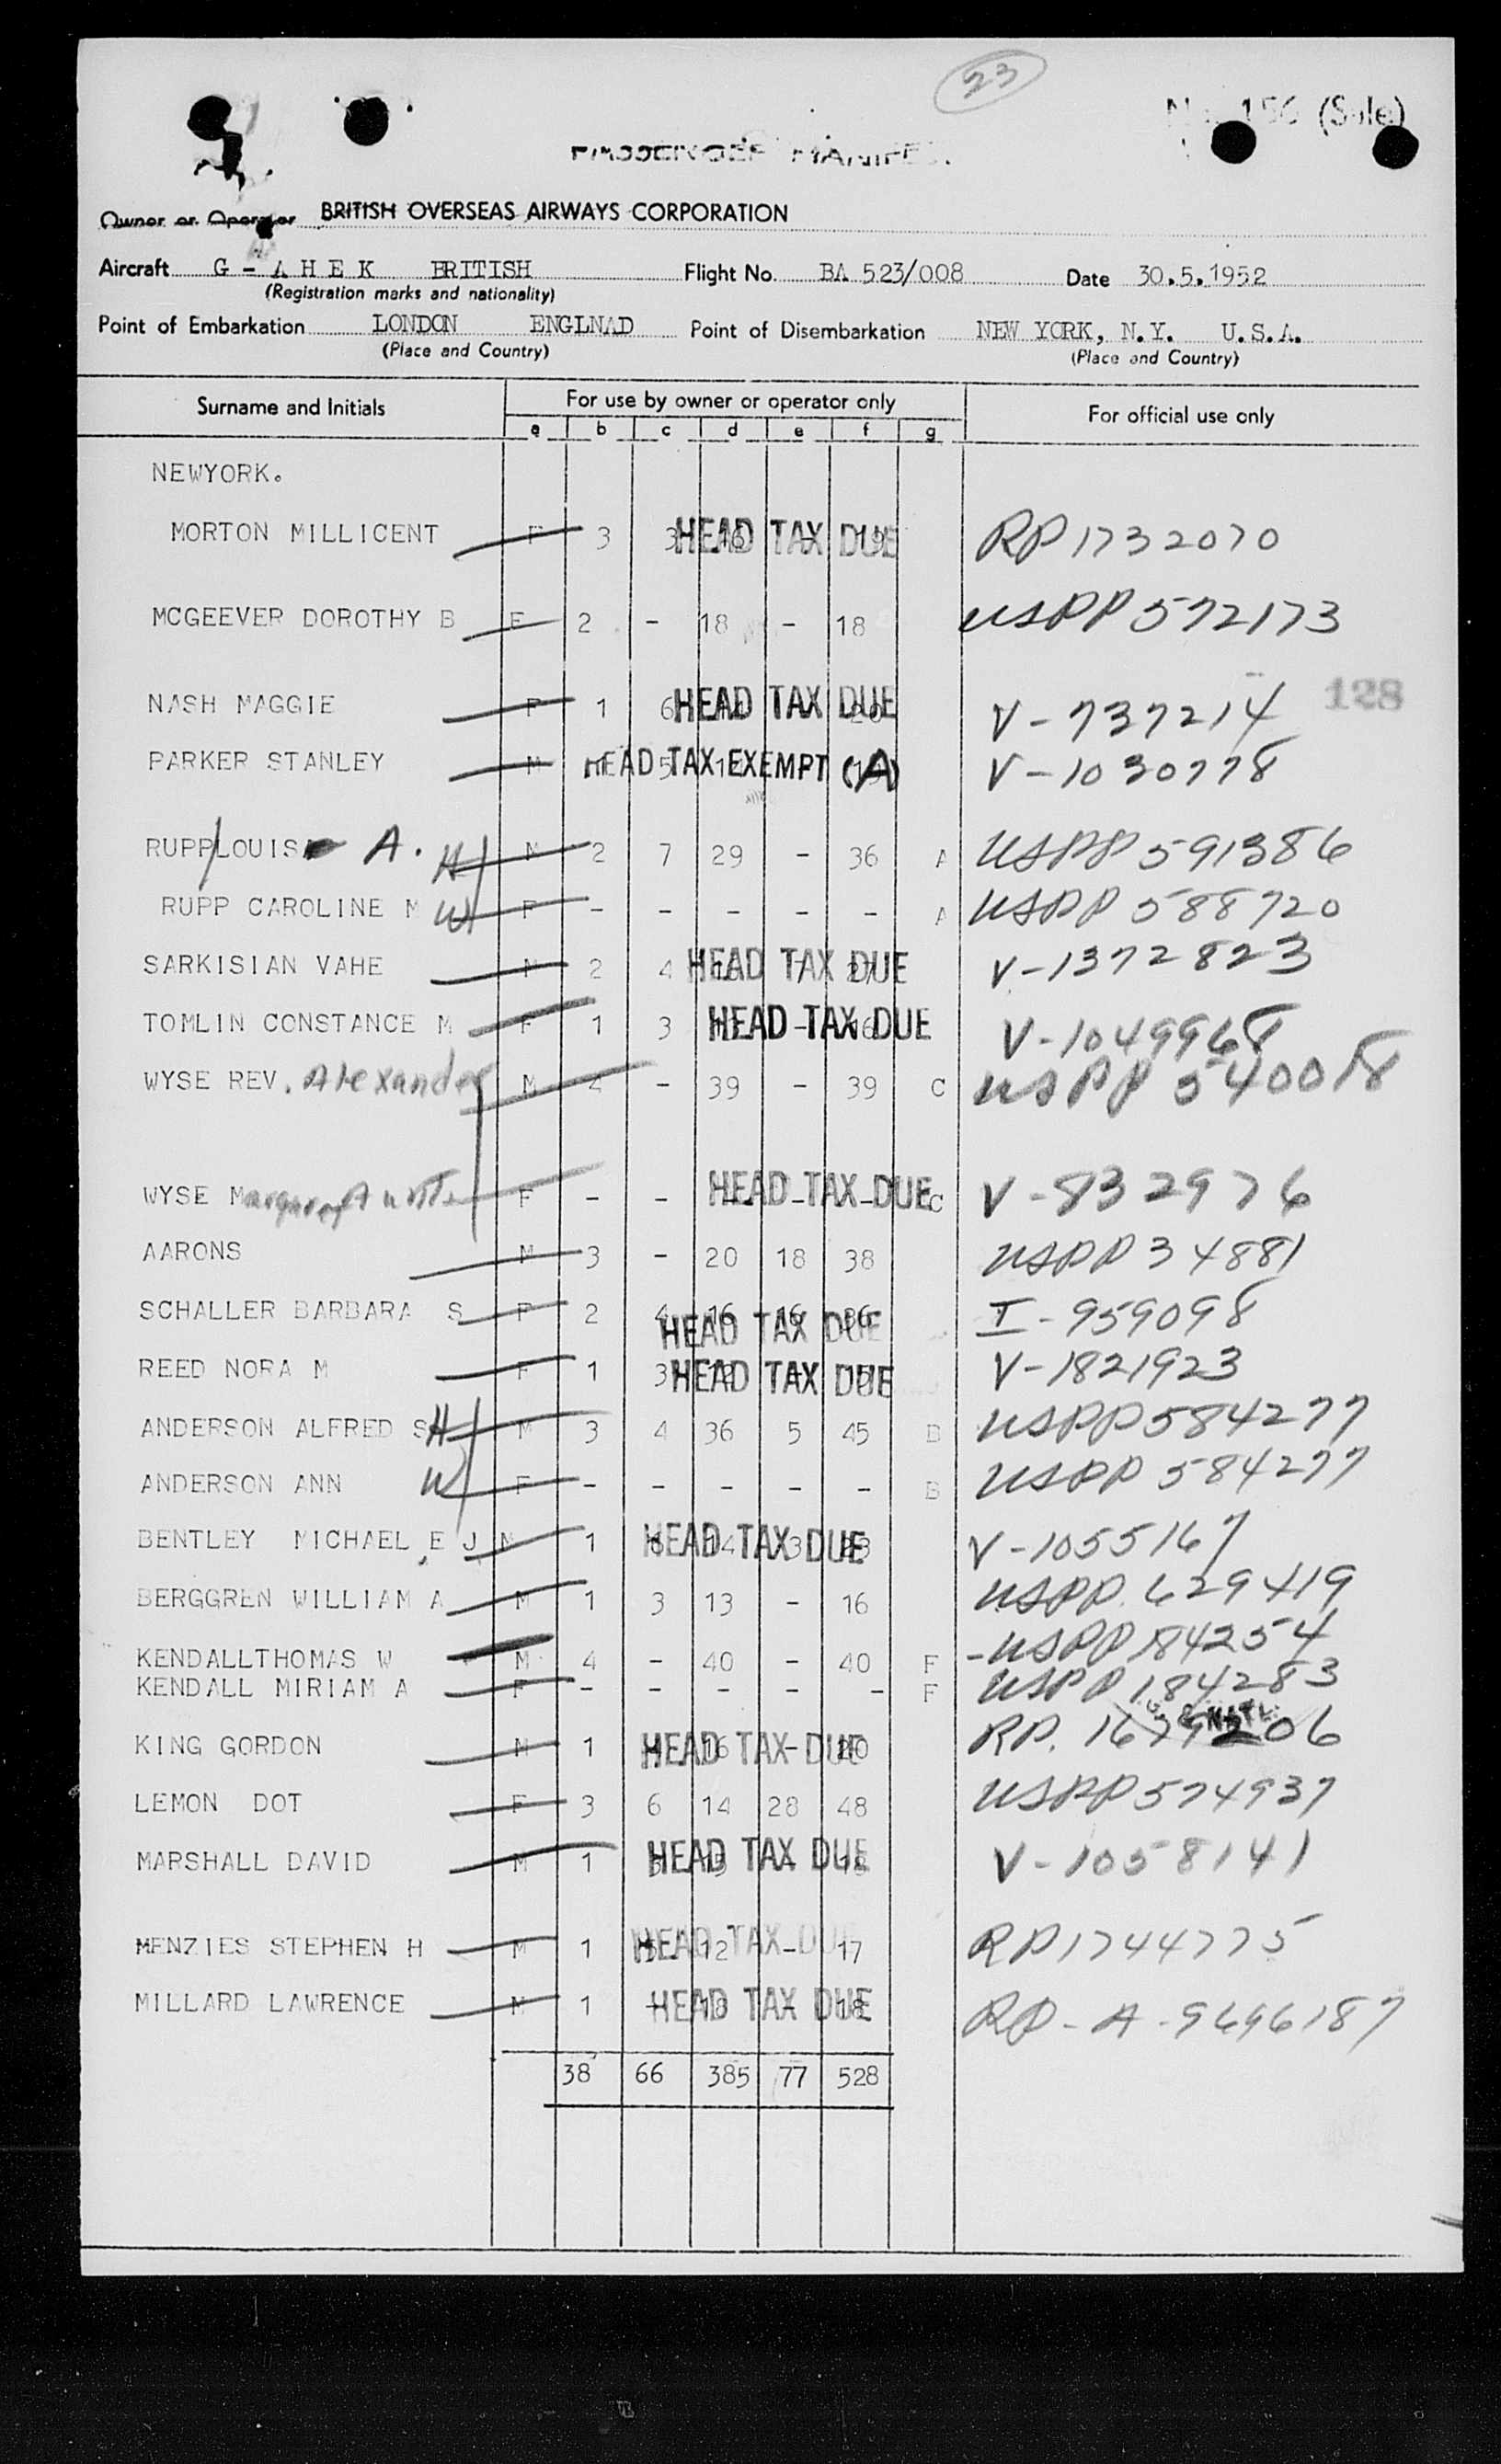 23
No. 156 (Sale)
PASSENGER MANIFEST
Owner or Operator BRITISH OVERSEAS AIRWAYS CORPORATION
Aircraft G - A H E K BRITISH Flight No. BA 523/008 Date 30.5.1952
(Registration marks and nationality)
Point of Embarkation LONDON ENGLNAD Point of Disembarkation NEW YORK, N.Y. U.S.A.
(Place and Country) (Place and Country)
Surname and Initials For use by owner or operator only For official use only
a b c d e f g
NEWYORK.
MORTON MILLICENT F 3 3 16 - 19 HEAD TAX DUE RP 1732070
MCGEEVER DOROTHY B F 2 - 18 - 18 USPP 572173
128
NASH MAGGIE F 1 6 HEAD TAX DUE V-737214
PARKER STANLEY M 5 HEAD TAX EXEMPT (A) V-1030778
RUPP LOUIS A. H M 2 7 29 - 36 A USPP 591386
RUPP CAROLINE M W F - - - - - A USPP 588720
SARKISIAN VAHE M 2 4 HEAD TAX DUE V-1372823
TOMLIN CONSTANCE M F 1 3 - 16 HEAD TAX DUE V-1049968
WYSE REV. Alexander M 4 - 39 - 39 C USPP 540018
WYSE Margaret F - - - - - HEAD TAX DUE C V-832976
AARONS M 3 - 20 18 38 USPP 34881
SCHALLER BARBARA S F 2 4 16 16 36 HEAD TAX DUE I-959098
REED NORA M F 1 3 12 - 15 HEAD TAX DUE V-1821923
ANDERSON ALFRED S H M 3 4 36 5 45 B USPP 584277
ANDERSON ANN W F - - - - - B USPP 584277
BENTLEY MICHAEL E J M 1 6 14 3 23 HEAD TAX DUE V-1055167
BERGGREN WILLIAM A M 1 3 13 - 16 USPP 629419
KENDALLTHOMAS W M 4 - 40 - 40 F -USPP 184254
KENDALL MIRIAM A F - - - - - F USPP 184283
KING GORDON M 1 16 - 20 HEAD TAX DUE RP. 1679206
LEMON DOT F 3 6 14 28 48 USPP 574937
MARSHALL DAVID M 1 3 15 - 18 HEAD TAX DUE V-1058141
MENZIES STEPHEN H M 1 5 12 - 17 HEAD TAX DUE RP 1744775
MILLARD LAWRENCE M 1 - 18 - 18 HEAD TAX DUE RP-A-9696187
38 66 385 77 528